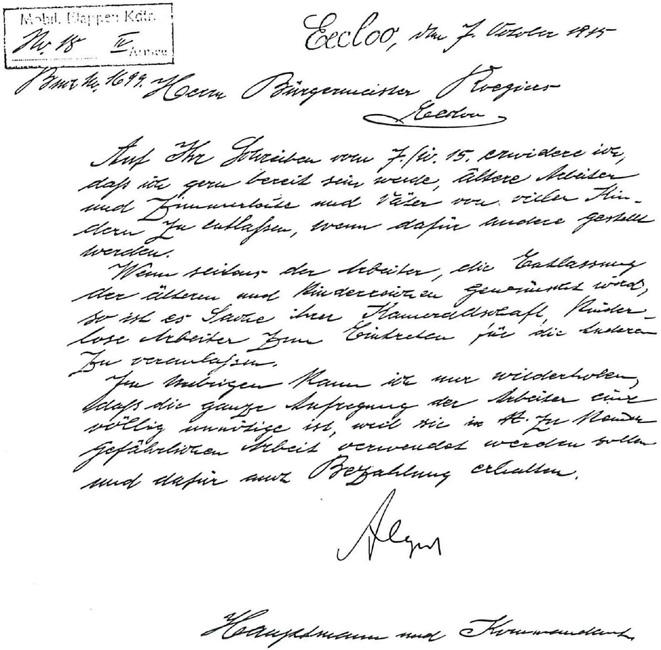 Mobil. Etappen Kdtr.
Nr. 18 IV Armee
Eecloo, den 7. October 1915
Herrn Bürgermeister
Eecloo
Auf Ihr Schreiben vom 7./IV. 15. erwidere ich,
daß ich gern bereit sein werde, ältere Arbeiter
und Zimmerleute und Väter von vielen Kin-
dern zu entlassen, wenn dafür andere gestellt
werden.
Wenn seitens der Arbeiter, die Entlassung
der älteren und Kinderreichen gewünscht wird,
so ist es Sache ihrer Kameradschaft, Kinder-
lose Arbeiter zum Eintreten für die Anderen
zu veranlassen.
Im Uebrigen kann ich nur wiederholen,
daß die ganze Aufregung der Arbeiter eine
völlig unnötige ist, weil sie in
Arbeit verwendet werden sollen
und dafür auch Bezahlung erhalten.
Hauptmann und Kommandant.